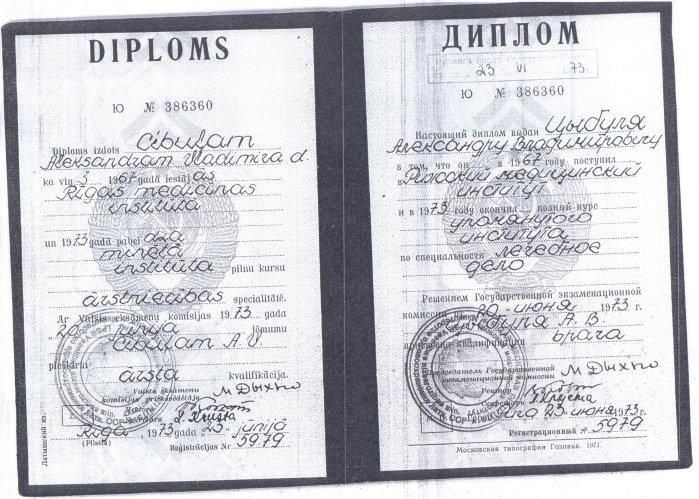 DIPLOMS
Ю № 386360
Diploms izdots Cibuļam
Aleksandram Vladimira d.
ka viņš 1967 gadā iestājās
Rīgas medicīnas
institūtā
un 1973 gadā pabeidza
minētā
institūta pilnu kursu
ārstniecības specialitātē.
Ar Valsts eksāmenu komisijas 1973 gada
"20" jūnija lēmumu
Cibuļam A.V.
piešķirta
ārsta kvalifikācija.
Valsts eksāmenu
komisijas priekšsēdētājs
М Дыхно
Rīgā, 1973 gada "23" jūnijā
(Pilsēta)
Reģistrācijas Nr 5979
Латышский яз.
ДИПЛОМ
23 VI 73.
Ю № 386360
Настоящий диплом выдан Цыбуля
Александру Владимировичу
в том, что он в 1967 году поступил
в Рижский медицинский
институт
и в 1973 году окончил полный курс
упомянутого
института
по специальности лечебное
дело
Решением Государственной экзаменационной
комиссии 20 июня 1973 г.
Цыбуля А. В.
присвоена квалификация
врача
Председатель Государственной
экзаменационной комиссии М Дыхно
Ректор
Секретарь
23 июня 1973 г.
Регистрационный № 5979
Московская типография Гознака. 1971.